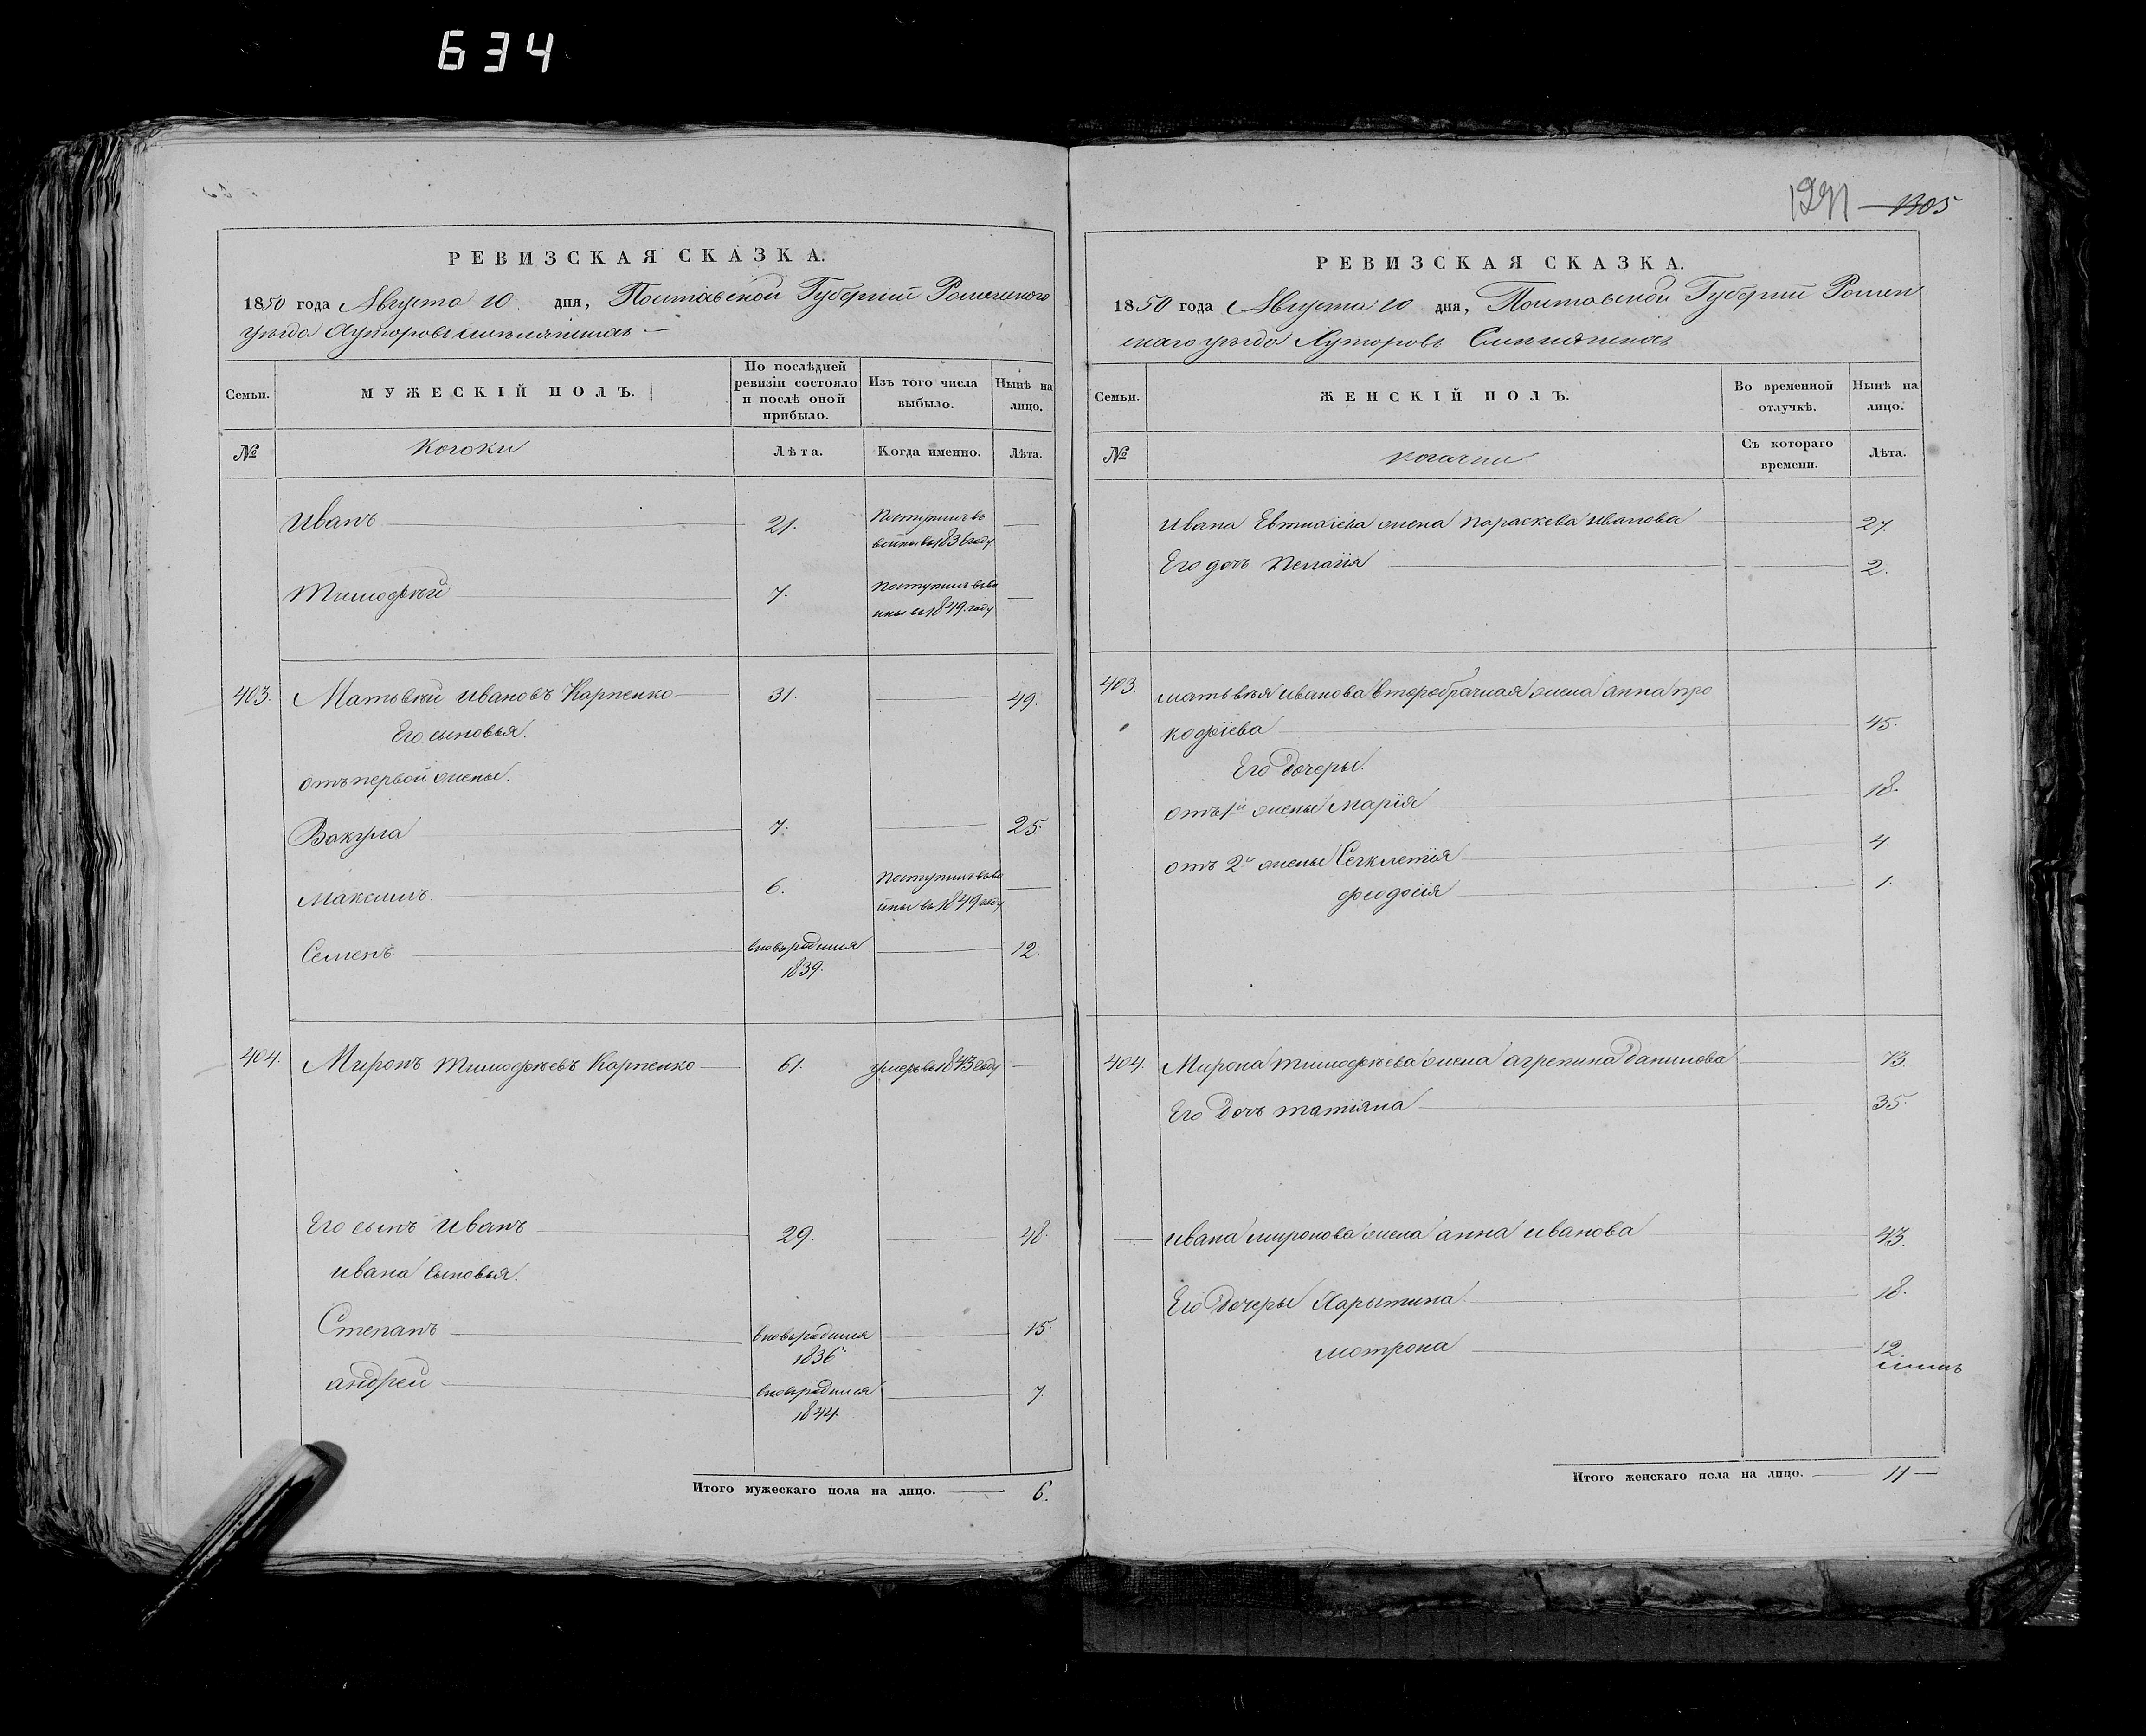 634
РЕВИЗСКАЯ СКАЗКА.
1850 года Августа 10 дня, Полтавской Губерніи Роменского
уѣзда Хуторовъ
Семьи.
МУЖЕСКІЙ ПОЛЪ.
По послѣдней ревизіи состояло и послѣ оной прибыло.
Изъ того числа выбыло.
Нынѣ на лицо.
№
Козаки
Лѣта.
Когда именно.
Лѣта.
Иванъ 21. Поступилъ въ
воины въ 1836 году
Тимофѣй 7. Поступилъ въ во
ины въ 1849 году
403. Матвѣй Ивановъ Карпенко 31. 49.
Его сыновья.
отъ первой жены.
Вакула 7. 25.
Максимъ 6. Поступилъ въ во
ины въ 1849 году
Семенъ вновьродился 12.
1839.
404. Миронъ Тимофѣевъ Карпенко 61. умеръ въ 1843 году
Его сынъ Иванъ 29. 48.
Ивана сыновья.
Степанъ вновьродился 15.
1836
Андрей вновьродился 7.
1844.
Итого мужескаго пола на лицо. 6.
1305
РЕВИЗСКАЯ СКАЗКА.
1850 года Августа 10 дня, Полтавской Губерніи Ромен
скаго уѣзда Хуторовъ
Семьи.
ЖЕНСКІЙ ПОЛЪ.
Во временной отлучкѣ.
Нынѣ на лицо.
№
козачки
Съ котораго времени.
Лѣта.
Ивана Евтихіева жена Параскева Иванова 27.
Его дочь Пелагія 2.
403. Матвѣя Иванова второбрачная жена Анна Про
кофіева 45.
Его дочеры.
отъ 1й жены Марія 18.
отъ 2й жены Секлетія 4.
Феодосія 1.
404. Мирона Тимофѣева жена Агрепина Данилова 73.
Его дочь Татіяна 35.
Ивана Миронова жена Анна Иванова 43.
Его дочеры Харытина 18.
Мотрона 12.
Итого женскаго пола на лицо. 11